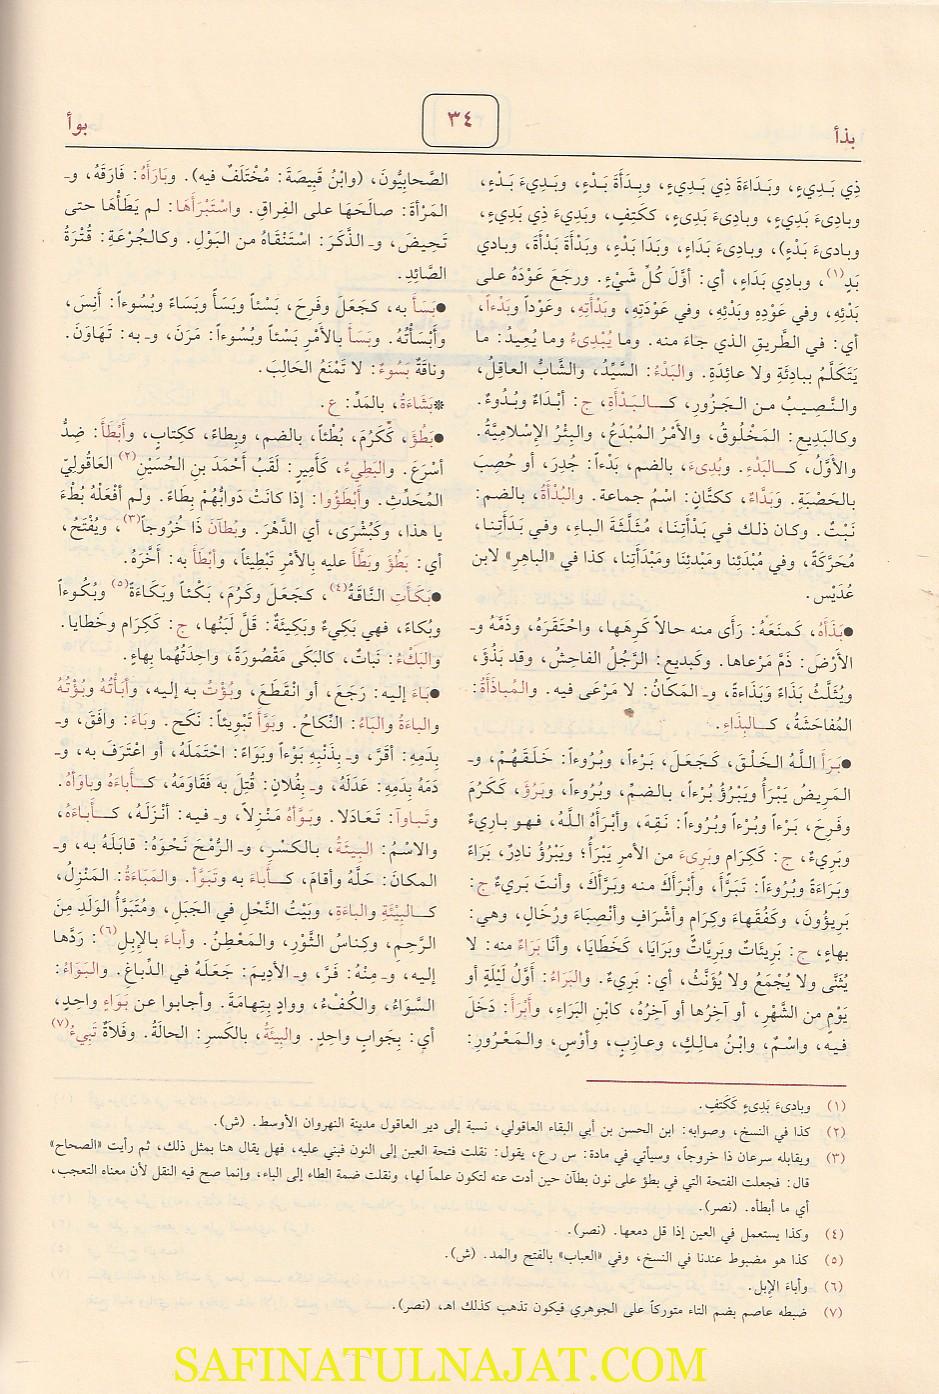 بذأ
٣٤
بوأ
ذِي بَدِيءٍ، وبَدَاءَةَ ذِي بَدِيءٍ، وبَدِأَةَ بَدْءٍ، وبَدِيءَ بَدْءٍ،
وبادِىءَ بَدِيءٍ، وبادِىءَ بَدِىءٍ، ككَتِفٍ، وبَدِيءَ ذِي بَدِيءٍ،
وبادِىءَ بَدْءٍ)، وبادِىءَ بَدَاءٍ، وبَدَا بَدْءٍ، وبَدْأَةَ بَدْأَةَ، وبادي
بَدٍ(١)، وبادِي بَدَاءٍ، أي: أوَّلَ كُلِّ شَيْءٍ. ورجَعَ عَوْدَهُ على
بَدْئِهِ، وفي عَوْدِهِ وبَدْئِهِ، وفي عَوْدَتِهِ، وبَدْأَتِهِ، وعَوْداً وبَدْءاً،
أي: في الطَّرِيقِ الذي جَاءَ منه. وما يُبْدِىءُ وما يُعِيدُ: ما
يَتَكَلَّمُ بِبادِئَةٍ ولا عائِدَةٍ. والبَدْءُ: السَّيِّدُ، والشَّابُّ العاقِلُ،
والنَّصِيبُ من الجَزُورِ، كالبَدْأَةِ، ج: أبْدَاءٌ وبُدُوءٌ.
وكالبَدِيعِ: المَخْلُوقُ، والأَمْرُ المُبْدَعُ، والبِئْرُ الإِسْلامِيَّةُ.
والأَوَّلُ، كالبَدْءِ. وبُدِىءَ، بالضم، بَدْءاً: جُدِرَ، أو حُصِبَ
بالحَصْبَةِ. وبَدَّاءٌ، ككتَّانٍ: اسْمُ جماعة. والبُدْأَةُ، بالضم:
نَبْتٌ. وكان ذلك في بَدْأَتِنَا، مُثَلَّثَةَ الباءِ، وفي بَدَأَتِنا،
مُحَرَّكَةً، وفي مُبْدَئِنا ومَبْدئِنَا ومَبْدَأَتِنا، كذا في «الباهِرِ» لابن
عُدَيْسٍ.
●بَذَأَهُ، كمَنَعَهُ: رَأى منه حالاً كَرِهَها، واحْتَقَرَهُ، وذَمَّهُ وـ
الأرْضَ: ذَمَّ مَرْعاها. وكبديعٍ: الرَّجُلُ الفاحِشُ، وقد بَذُؤَ،
ويُثَلَّثُ بَذَاءً وبَذَاءةً، وـ المَكانُ: لا مَرْعَى فيه. والمُباذَأَةُ:
المُفاحَشَةُ، كالبِذَاءِ.
●بَرَأَ اللَّهُ الخَلْقَ، كَجَعَلَ، بَرْءاً، وبُرُوءاً: خَلَقَهُمْ، وـ
المَرِيضُ يَبْرَأُ ويَبْرُؤُ بُرْءاً، بالضمِّ، وبُرُوءاً، وبَرُؤَ، كَكَرُمَ
وفَرِحَ، بَرْءاً وبُرْءاً وبُرُوءاً: نَقِهَ، وأبْرَأَهُ اللَّهُ، فهو بارِيءٌ
وبَرِيءٌ، ج: ككِرَامٍ وبَرِىءَ من الأمرِ يَبْرَأُ؛ ويَبْرُؤُ نادِرٌ، بَرَاءً
وبَرَاءَةً وبُرُوءَاً: تَبَرَّأَ، وأبْرَأَكَ منه وبَرَّأَكَ، وأنتَ بَريءٌ ج:
بَرِيؤُونَ، وكَفُقَهاءَ وكِرَامٍ وأشْرَافٍ وأنْصِبَاءَ ورُخَالٍ، وهي:
بهاءٍ، ج: بَرِيئَاتٌ وبَرِيَّاتٌ وبَرَايَا، كَخَطَايَا، وأنَا بَرَاءٌ منه: لا
يُثَنَّى ولا يُجْمَعُ ولا يُؤَنَّثُ، أي: بَرِيءٌ. والبَرَاءُ: أَوَّلُ لَيْلَةٍ أو
يَوْمٍ من الشَّهْرِ، أو آخِرُها أو آخِرُهُ، كابْنِ البَرَاءِ، وأبْرَأَ: دَخَلَ
فيه، واسْمٌ، وابْنُ مالِكٍ، وعازِبٍ، وأوْسٍ، والمَعْرُورِ:
الصَّحابِيُّونَ، (وابْنُ قَبِيصَةَ: مُخْتَلَفٌ فيه). وبَارَأَهُ: فَارَقَهُ، وـ
المَرْأةَ: صالَحَهَا على الفِراقِ. واسْتَبْرَأَهَا: لم يَطَأْهَا حتى
تَحِيضَ، وـ الذَّكَرَ: اسْتَنْقَاهُ من البَوْلِ. وكالجُرْعَةِ: قُتْرَةُ
الصَّائِدِ.
●بَسَأَ به، كجَعَلَ وفَرِحَ، بَسْئاً وبَسَأً وبَسَاءً وبُسُوءاً: أَنِسَ،
وأَبْسَأْتُهُ. وبَسَأَ بالأمْرِ بَسْئاً وبُسُوءاً: مَرَنَ، وـ به: تَهَاوَنَ.
وناقَةٌ بَسُوءٌ: لا تَمْنَعُ الحَالِبَ.
*بَشَاءَةُ، بالمَدِّ: ع.
●بَطُؤَ، كَكَرُمَ، بُطْئاً، بالضم، وبِطاءً، ككِتابٍ، وأَبْطَأَ: ضِدُّ
أسْرَعَ. والبَطِيءُ، كأَمِيرٍ: لَقَبُ أحْمَدَ بنِ الحُسَيْنِ(٢) العَاقُولِيِّ
المُحَدِّثِ. وأَبْطَؤُوا: إذا كانَتْ دَوابُّهُمْ بِطَاءً. ولم أفْعَلْهُ بُطْءَ
يا هذا، وكَبُشْرَى، أي الدَّهْرَ. وبُطآنَ ذَا خُرُوجاً(٣)، ويُفْتَحُ،
أي: بَطُؤَ وبَطَّأَ عليه بالأمْرِ تَبْطِيئاً، وأبْطَأَ به: أخَّرَهُ.
●بَكَأَتِ النَّاقَةُ(٤)، كجَعَلَ وكَرُمَ، بَكْئاً وبَكَاءَةً(٥) وبُكُوءاً
وبُكاءً، فهي بَكِيءٌ وبَكِيئَةٌ: قَلَّ لَبَنُها، ج: كَكِرَامٍ وخَطايا.
والبَكْءُ: نَباتٌ، كالبَكَى مَقْصُورَةً، واحِدَتُهُما بِهاءٍ.
●باءَ إليه: رَجَعَ، أو انْقَطَعَ، وبُؤْتُ به إليه، وأَبَأْتُهُ وبُؤْتُهُ
والباءَةُ والباءُ: النِّكاحُ. وبَوَّأَ تَبْوِيئاً: نَكَح. وباءَ: وافَقَ، وـ
بِدَمِهِ: أقَرَّ، وـ بِذَنْبِهِ بَوْءاً وبَوَاءً: احْتَمَلَهُ، أو اعْتَرَفَ به، وـ
دَمَهُ بِدَمِهِ: عَدَلَهُ، وـ بِفُلانٍ: قُتِلَ به فَقَاوَمَهُ، كأَباءَهُ وباوَأهُ.
وتَباوآ: تَعَادَلا. وبَوَّأَهُ مَنْزِلاً، وـ فيه: أنْزَلَهُ، كأَباءَهُ،
والاسْمُ: البِيئَةُ، بالكسْرِ، وـ الرُّمْحَ نَحْوَهُ: قابَلَهُ به، وـ
المكانَ: حَلَّهُ وأقامَ، كأَباءَ به وتَبَوَّأَ. والمَبَاءَةُ: المَنْزِلُ،
كالبِيْئَةِ والباءَةِ، وبَيْتُ النَّحْلِ في الجَبَلِ، ومُتَبَوَّأُ الوَلَدِ مِنَ
الرَّحِمِ، وكِناسُ الثَّوْرِ، والمَعْطِنُ. وأباءَ بالإِبِلِ(٦): رَدَّها
إليه، وـ مِنْهُ: فَرَّ، وـ الأديمَ: جَعَلَهُ في الدِّباغِ. والبَوَاءُ:
السَّوَاءُ، والكُفْءُ، ووادٍ بِتِهامَةَ. وأجابوا عن بَوَاءٍ واحِدٍ،
أي: بِجَوابٍ واحِدٍ. والبِيئَةُ، بالكَسرِ: الحالَةُ. وفَلاةٌ تَبيءُ(٧)
(١) وبادىءَ بَدِىءٍ كَكَتِفٍ.
(٢) كذا في النسخ، وصوابه: ابن الحسن بن أبي البقاء العاقولي، نسبة إلى دير العاقول مدينة النهروان الأوسط. (ش).
(٣) ويقابله سرعان ذا خروجاً، وسيأتي في مادة: س ر ع، يقول: نقلت فتحة العين إلى النون فبني عليه، فهل يقال هنا بمثل ذلك، ثم رأيت «الصحاح»
قال: فجعلت الفتحة التي في بطؤ على نون بطآن حين أدت عنه لتكون علماً لها، ونقلت ضمة الطاء إلى الباء، وإنما صح فيه النقل لأن معناه التعجب،
أي ما أبطأه. (نصر).
(٤) وكذا يستعمل في العين إذا قل دمعها. (نصر).
(٥) كذا هو مضبوط عندنا في النسخ، وفي «العباب» بالفتح والمد. (ش).
(٦) وأباءَ الإِبل.
(٧) ضبطه عاصم بضم التاء متوركاً على الجوهري فيكون تذهب كذلك اهـ، (نصر).
SAFINATULNAJAT.COM